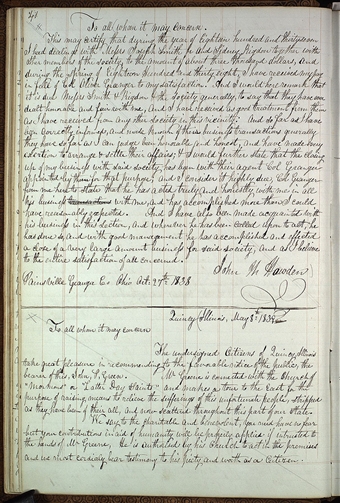 To all whom it may concern.
This may certify that during the year of Eighteen hundred and thirty seven
I had dealing with Messrs Joseph Smith, Jr and Sidney Rigdon together with
other members of the society, to the amount of about three thousand dollars, and
during the spring of Eighteen Hundred and thirty eight, I have received my pay
in full of Col Oliver Granger to my satisfaction. And I would here remark that
it is due Messrs Smith & Rigdon & the Society generally, to say that they have ever
dealt honorable and fair with me, and I have received as good treatment from them
as I have received from any other society in this vicinity: And so far as I have
been correctly informed, and made known of their business transactions generally,
they have so far as I can judge been honorable and honest, and have made every
exertion to arrange & settle their affairs; & I would further state that the closing
up of my business with said society has been with their agent Col Granger
appointed by them for that purpose; and I consider it highly due Col Granger
from me here to state that he has acted truly and honestly with me in all
his business with me, and has accomplished more than I could
have reasonably expected. And I have also been made acquainted with
his business in this section, and wherever he has been called upon to act, he
has done so, and with good management he has accomplished and effected
a close of a very large amount business for said society, and as I believe
to the entire satisfaction of all concerned.
John W. Howden
Painsville Geauga Co Ohio Oct. 27th 1838
Quincy Illinois, May 8th 1839
To all whom it may concern
The undersigned Citizens of Quincy Illinois
take great pleasure in recommending to the favorable notice of the public, the
bearer of this, John P. Green. Mr Green is connected with the Church of
"Mormons" or "Latter Day Saints" and makes a tour to the East for the
purpose of raising means to relieve the sufferings of this unfortunate people, stripped
as they have been of their all, and now scattered throughout this part of our State.
We say to the charitable and benevolent, you need have no fear
but your contributions in aid of humanity will be properly applied if intrusted to
the hands of Mr Greene. He is authorized by his Church to act in the premises
and we most cordially bear testimony to his piety and worth as a Citizen.